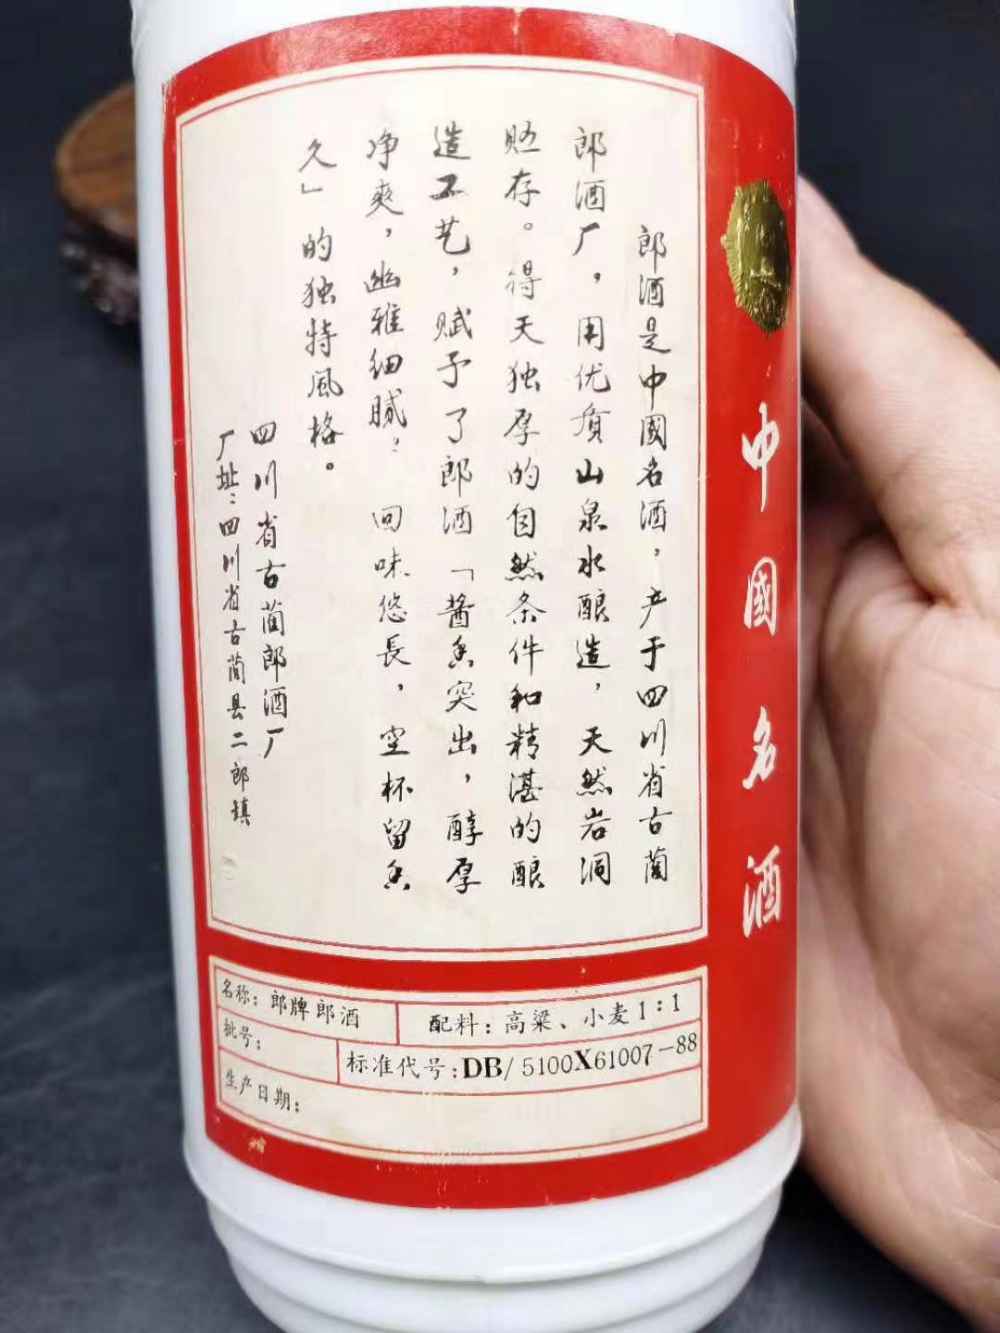 郎酒是中國名酒，产于四川省古蔺
郎酒厂，用优質山泉水酿造，天然岩洞
贮存。得天独厚的自然条件和精湛的酿
造工艺，赋予了郎酒「酱香突出，醇厚
净爽，幽雅细腻；回味悠長，空杯留香
久」的独特風格。
四川省古蔺郎酒厂
厂址：四川省古蔺县二郎镇
中國名酒
名称：郎牌郎酒
配料：高粱、小麦1：1
批号：
标准代号：DB/5100X61007-88
生产日期：